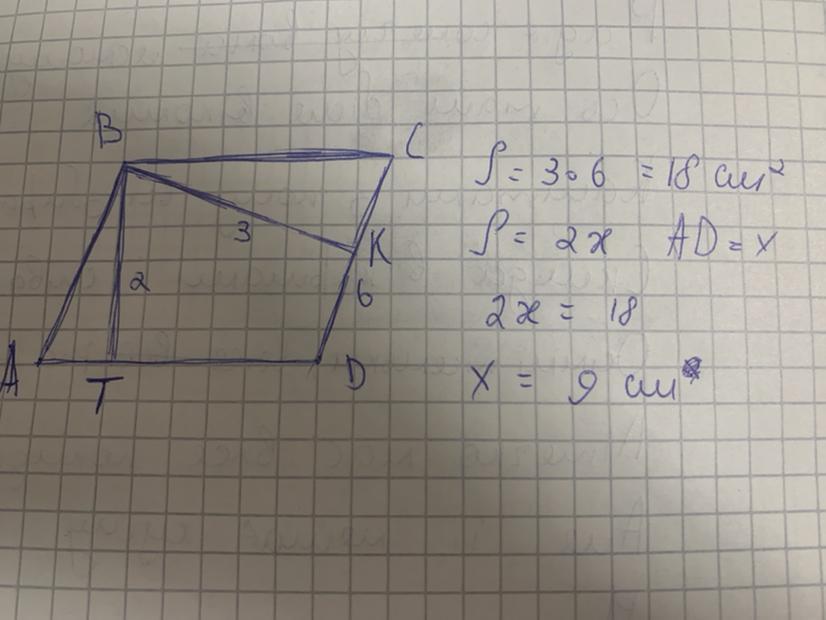 B
C
S = 3 ∘ 6 = 18 см²
3
K
S = 2x AD = x
2
6
2x = 18
A
T
D
x = 9 см